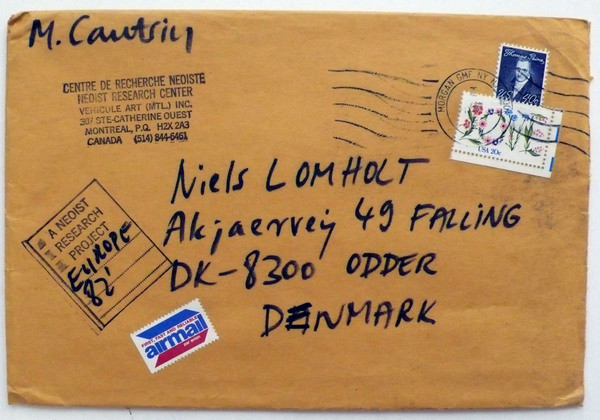 M. Cantsin
CENTRE DE RECHERCHE NEOISTE
NEOIST RESEARCH CENTER
VEHICULE ART (MTL.) INC.
307 STE-CATHERINE OUEST
MONTREAL, P.Q. H2X 2A3
CANADA (514) 844-6461
MORGAN GMF NY
Thomas Paine
40c
USA 20c
Niels LOMHOLT
Akjaervej 49 FALLING
DK-8300 ODDER
DENMARK
A NEOIST
RESEARCH
PROJECT
EUROPE
82'
FIRST, FAST AND RELIABLE
airmail
PAR AVION